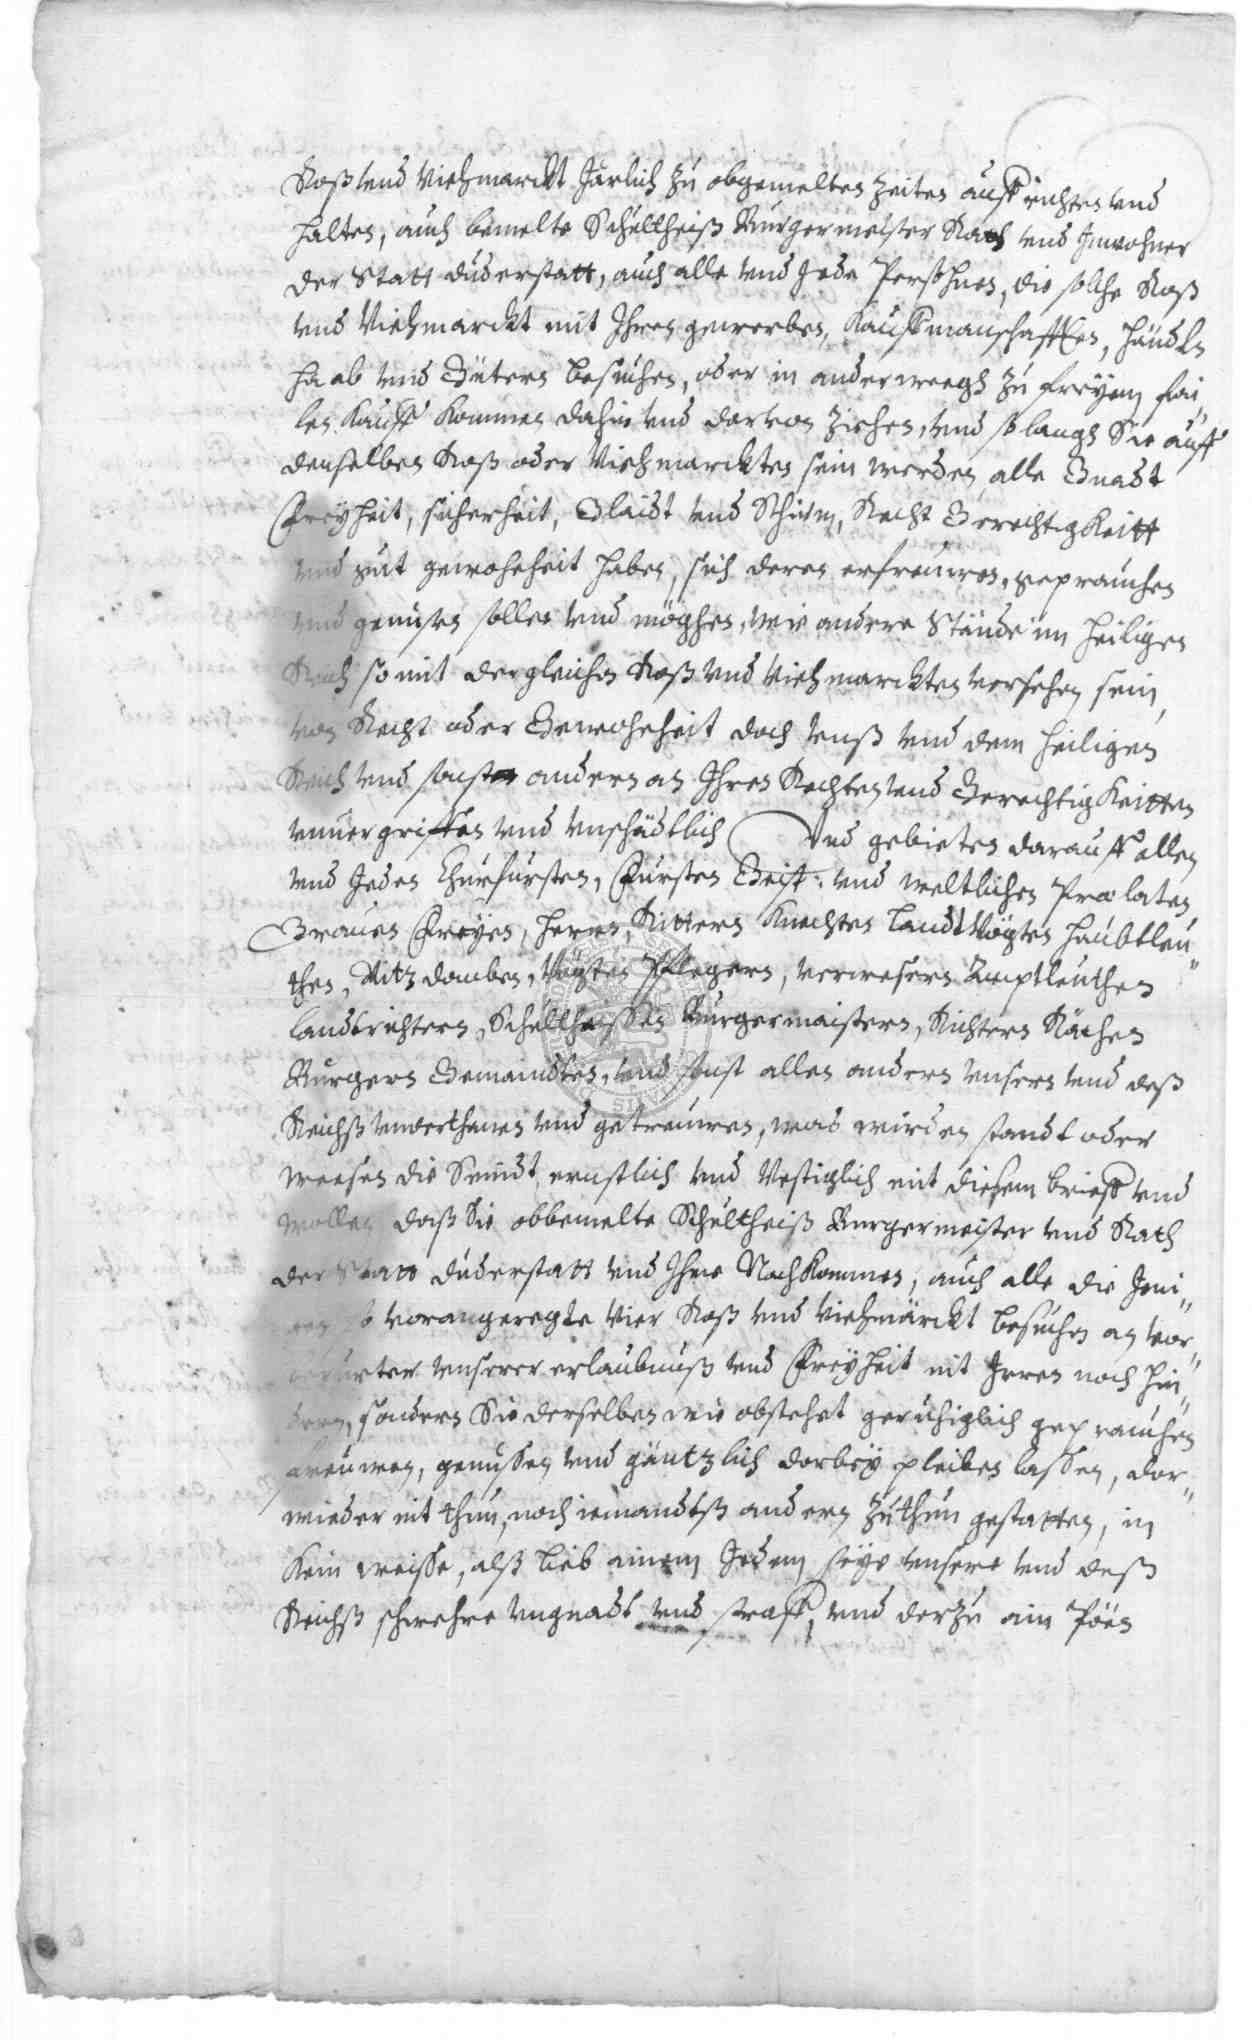 Roß vnd Viehmarckt Järlich zu obgemelten Zeiten auffrichten vnd
halten, auch bemelte Schultheiß Burgermeister Rath vnd Inwohner
der Statt Duderstatt, auch alle vnd Jede Persohnen, die solche Roß
vnd Viehmarckt mit Ihren gewerben, Kauffmanschafften, händtln
haab vnd Gütern besuchen, oder in anderweegh zu freyem fai„
len Kauff kommen dahin vnd darvon ziehen, vnd so langh Sie auff
denselben Roß oder Viehmarckten sein werden, alle Gnadt
Freyheit, sicherheit, Glaidt vnd Schirm, Recht Gerechtigkeitt
vnd gut gewohnheit haben, sich deren erfreuwen, geprauchen
vnd genussen sollen vnd möghen, wie andere Stände im heiligen
Reich so mit dergleichen Roß vnd Viehmarckten versehen sein,
von Recht oder Gewohnheit doch vnß vnd dem heiligen
Reich vnd sonsten andern an Ihren Rechten vnd Gerechtigkeitten
vnuergriffen vnd vnschädtlich Vnd gebieten darauff allen
vnd Jeden Churfürsten, Fürsten Geist: vnd weltlichen Prælaten
Grauen Freyen, herren, Rittern Knechten Landtvögten haubtleu„
then, Vitzdomben, Vögten Pflegern, verwesern Amptleuthen
Landtrichtern, Schultheissen Burgermaistern, Richtern Räthen
Burgern Gemaindten, vnd sonst allen andern vnsern vnd deß
Reichß vnderthanen vnd getreuwen, was wirden standt oder
weesen die Seindt, ernstlich vnd Vestiglich mit diesem brieff vnd
wollen daß Sie obbemelte Schultheiß Burgermeister vnd Rath
der Statt Duderstatt vnd Ihre Nachkommen, auch alle die Jeni„
gen so vorangeregte Vier Roß vnd Viehmärckt besuchen an vor„
vnserer erlaubnuß vnd Freyheit nit Irren noch hin„
dern, sondern Sie derselben wie obstehet geruhiglich geprauchen
freuwen, genussen vnd gäntzlich darbey pleiben lassen, dar„
wieder nit thun, noch iemandtß andern zuthun gestatten, in
kein weisse, alß lieb ainem Jedem seye vnsere vnd deß
Reichß schwehre vngnadt vnd straff, vnd derzu ain Pöen